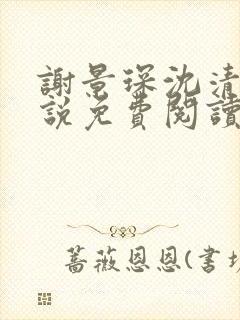 謝景琛沈清
説免費閱讀
薔薇恩恩(书坊